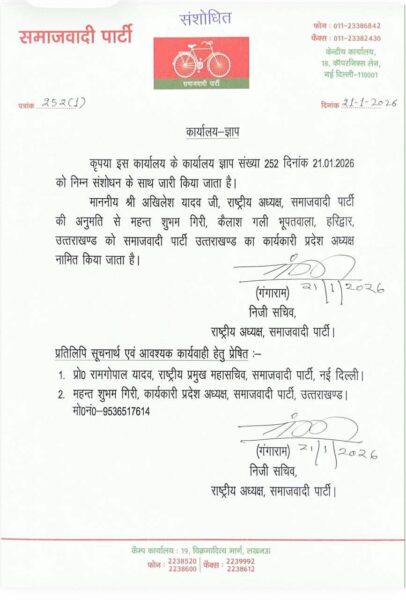 संशोधित
समाजवादी पार्टी
समाजवादी पार्टी
फोन : 011-23386842
फैक्स : 011-23382430
केन्द्रीय कार्यालय,
18, कॉपरनिक्स लेन,
नई दिल्ली-110001
पत्रांक 252(1)
दिनांक 21-1-2026
कार्यालय-ज्ञाप
कृपया इस कार्यालय के कार्यालय ज्ञाप संख्या 252 दिनांक 21.01.2026
को निम्न संशोधन के साथ जारी किया जाता है।
माननीय श्री अखिलेश यादव जी, राष्ट्रीय अध्यक्ष, समाजवादी पार्टी
की अनुमति से महन्त शुभम गिरी, कैलाश गली भूपतवाला, हरिद्वार,
उत्तराखण्ड को समाजवादी पार्टी उत्तराखण्ड का कार्यकारी प्रदेश अध्यक्ष
नामित किया जाता है।
21/1/2026
(गंगाराम)
निजी सचिव,
राष्ट्रीय अध्यक्ष, समाजवादी पार्टी।
प्रतिलिपि सूचनार्थ एवं आवश्यक कार्यवाही हेतु प्रेषित :–
1. प्रो0 रामगोपाल यादव, राष्ट्रीय प्रमुख महासचिव, समाजवादी पार्टी, नई दिल्ली।
2. महन्त शुभम गिरी, कार्यकारी प्रदेश अध्यक्ष, समाजवादी पार्टी, उत्तराखण्ड।
मो0नं0-9536517614
(गंगाराम) 21/1/2026
निजी सचिव,
राष्ट्रीय अध्यक्ष, समाजवादी पार्टी।
कैम्प कार्यालय : 19, विक्रमादित्य मार्ग, लखनऊ
फोन : 2238520 2238600 फैक्स : 2239992 2238612